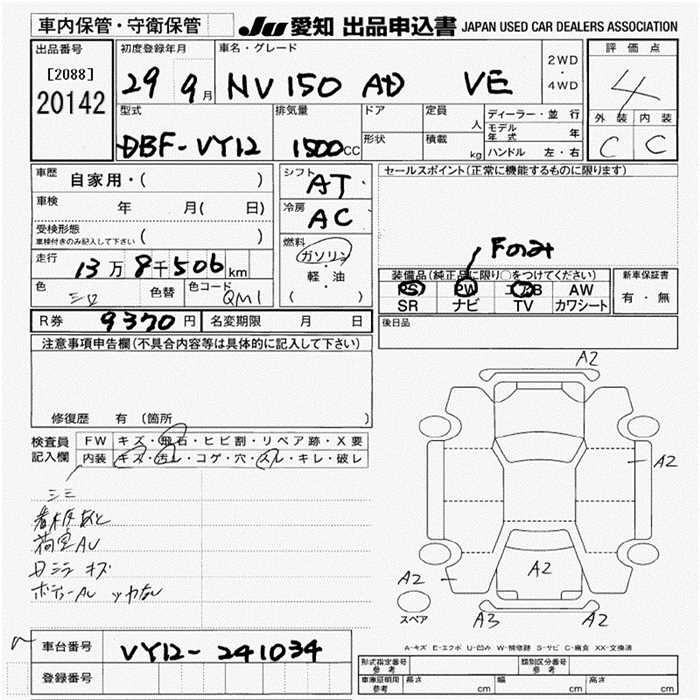 車内保管・守衛保管
JU 愛知 出品申込書 JAPAN USED CAR DEALERS ASSOCIATION
出品番号
[2088]
20142
初度登録年月
29 9月
車名・グレード
NV150 AD VE
2WD
・
4WD
評価点
4
外装 内装
C C
型式
DBF-VY12
排気量
1500CC
ドア
形状
定員
人
積載
kg
ディーラー・並行
モデル年式 年
ハンドル 左・右
車歴 自家用・( )
車検 年 月( 日)
受検形態
車検付きのみ記入して下さい ( )
走行 13万8千506km
色 色替 色コード QM1
シフト AT
冷房 AC
燃料
ガソリン
・
軽・油
( )
セールスポイント(正常に機能するものに限ります)
Fのみ
装備品(純正品に限り○をつけてください)
PS PW エアB AW
SR ナビ TV カワシート
新車保証書
有・無
R券 9370円 名変期限 月 日
後日品
注意事項申告欄(不具合内容等は具体的に記入して下さい)
修復歴 有(箇所 )
検査員記入欄
FW キズ・飛石・ヒビ割・リペア跡・X要
内装 キズ・汚レ・コゲ・穴・スレ・キレ・破レ
荷室AU
ミラーキズ
A2
A2
A2
A2
A3
A2
スペア
A-キズ E-エクボ U-凹み W-補修跡 S-サビ C-腐食 XX-交換済
車台番号 VY12-241034
登録番号
形式指定番号 参考
類別区分番号 参考
車庫証明用 参考 長さ cm 幅 cm 高さ cm